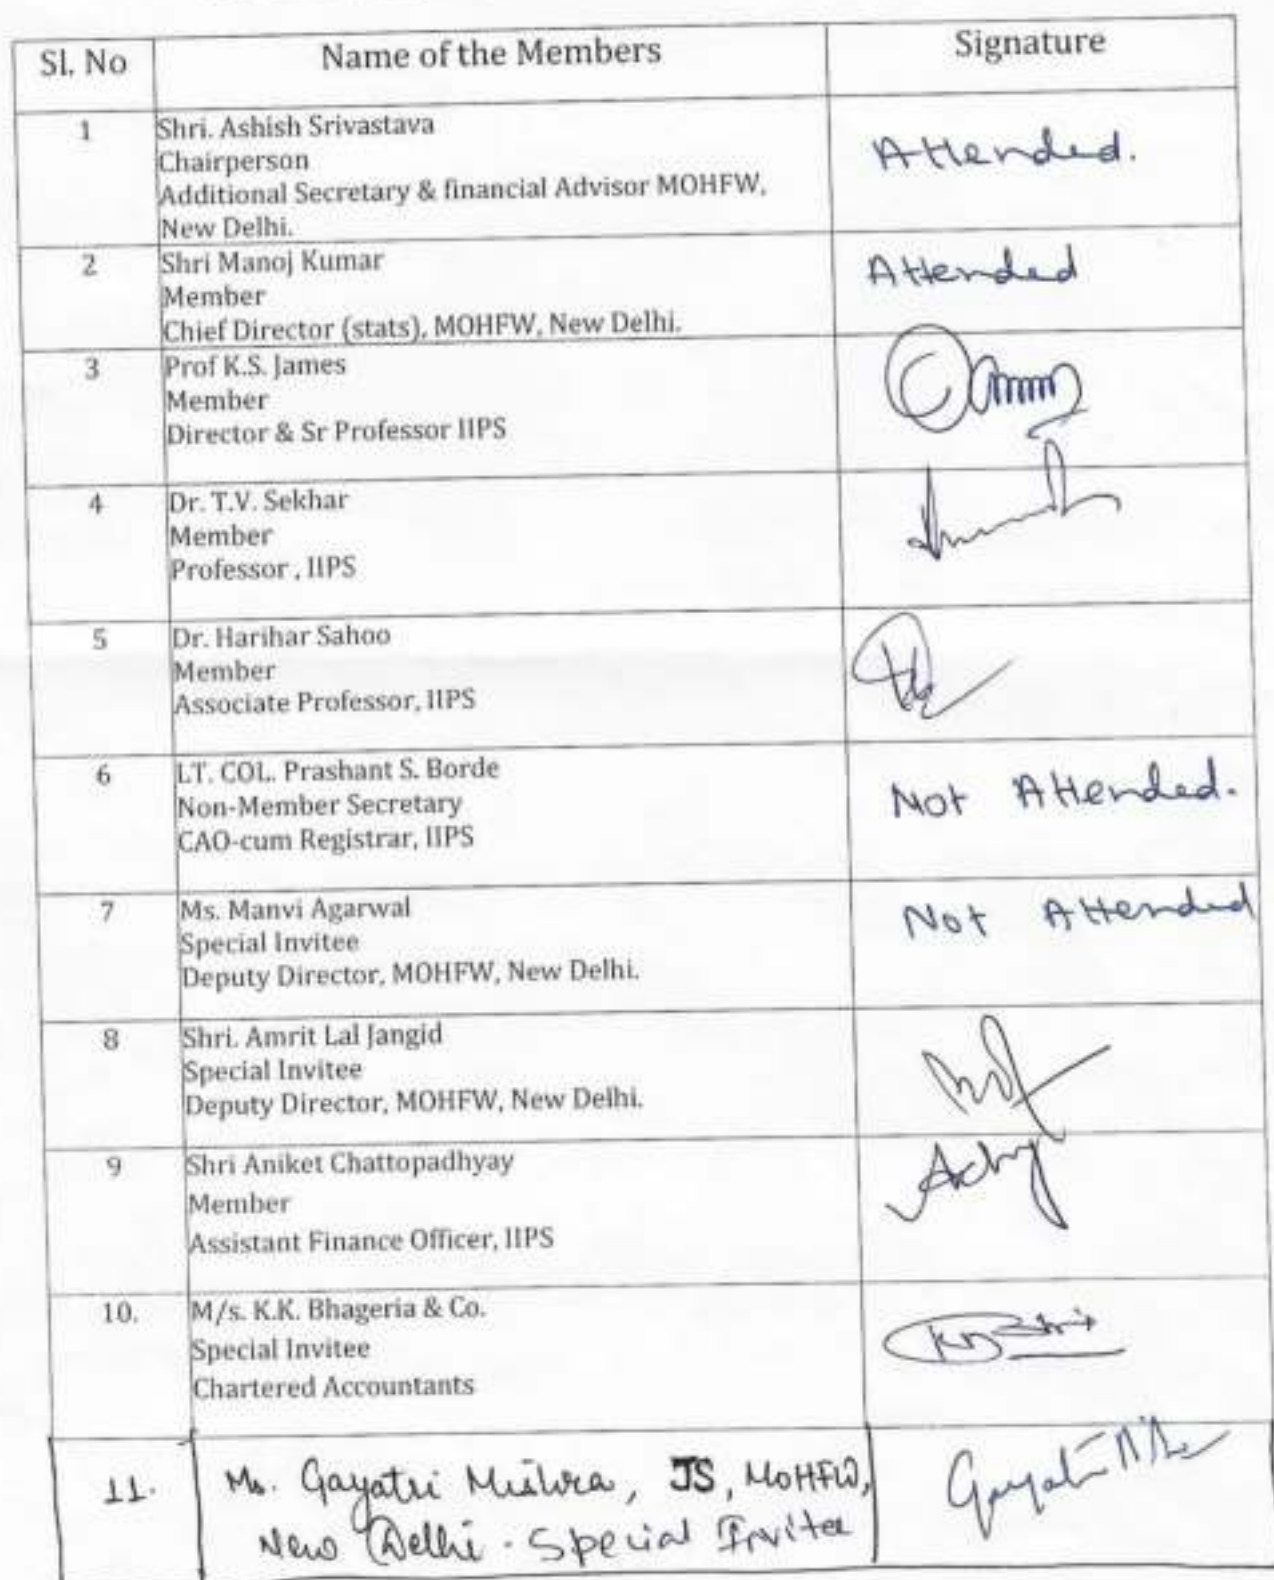 Sl. No Name of the Members Signature
1 Shri. Ashish Srivastava
Chairperson
Additional Secretary & financial Advisor MOHFW,
New Delhi.
Attended.
2 Shri Manoj Kumar
Member
Chief Director (stats), MOHFW, New Delhi.
Attended
3 Prof K.S. James
Member
Director & Sr Professor IIPS
4 Dr. T.V. Sekhar
Member
Professor , IIPS
5 Dr. Harihar Sahoo
Member
Associate Professor, IIPS
6 LT. COL. Prashant S. Borde
Non-Member Secretary
CAO-cum Registrar, IIPS
Not Attended.
7 Ms. Manvi Agarwal
Special Invitee
Deputy Director, MOHFW, New Delhi.
Not Attended
8 Shri. Amrit Lal Jangid
Special Invitee
Deputy Director, MOHFW, New Delhi.
9 Shri Aniket Chattopadhyay
Member
Assistant Finance Officer, IIPS
10. M/s. K.K. Bhageria & Co.
Special Invitee
Chartered Accountants
11. Ms. Gayatri Mishra, JS, MoHFW,
New Delhi - Special Invitee
Gayatri